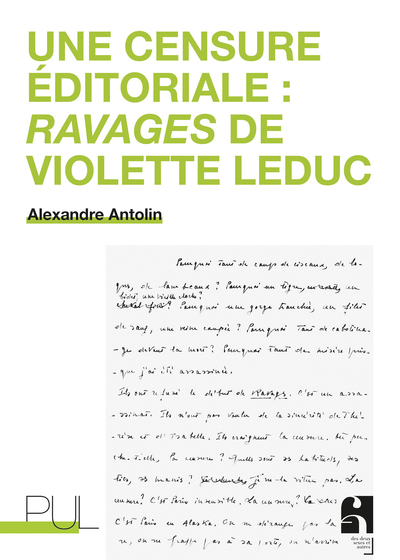 UNE CENSURE
ÉDITORIALE :
RAVAGES DE
VIOLETTE LEDUC
Alexandre Antolin
Pourquoi tant de coups de ciseaux, de
de lambeaux ? Pourquoi un tigre,
Pourquoi une gorge tranchée, un filet
de sang, une veine coupée ? Pourquoi tant de cabotina-
-ge devant la mort ? Pourquoi tant de misère puis-
-que j'ai été assassinée.
Ils ont refusé le début de Ravages. C'est un assa-
-ssinat. Ils n'ont pas voulu de la sincérité de Thé-
-rèse et d'Isabelle. Ils craignent la censure.
la censure ? Quelles sont ses habitudes, ses
ses manies ? je ne la vois pas. La
censure ? C'est Paris insensible. La censure ?
C'est Paris en Alaska. On ne dérange pas la
on ne frappe pas à sa porte, on n'arrive
PUL
des deux
sexes et
autres